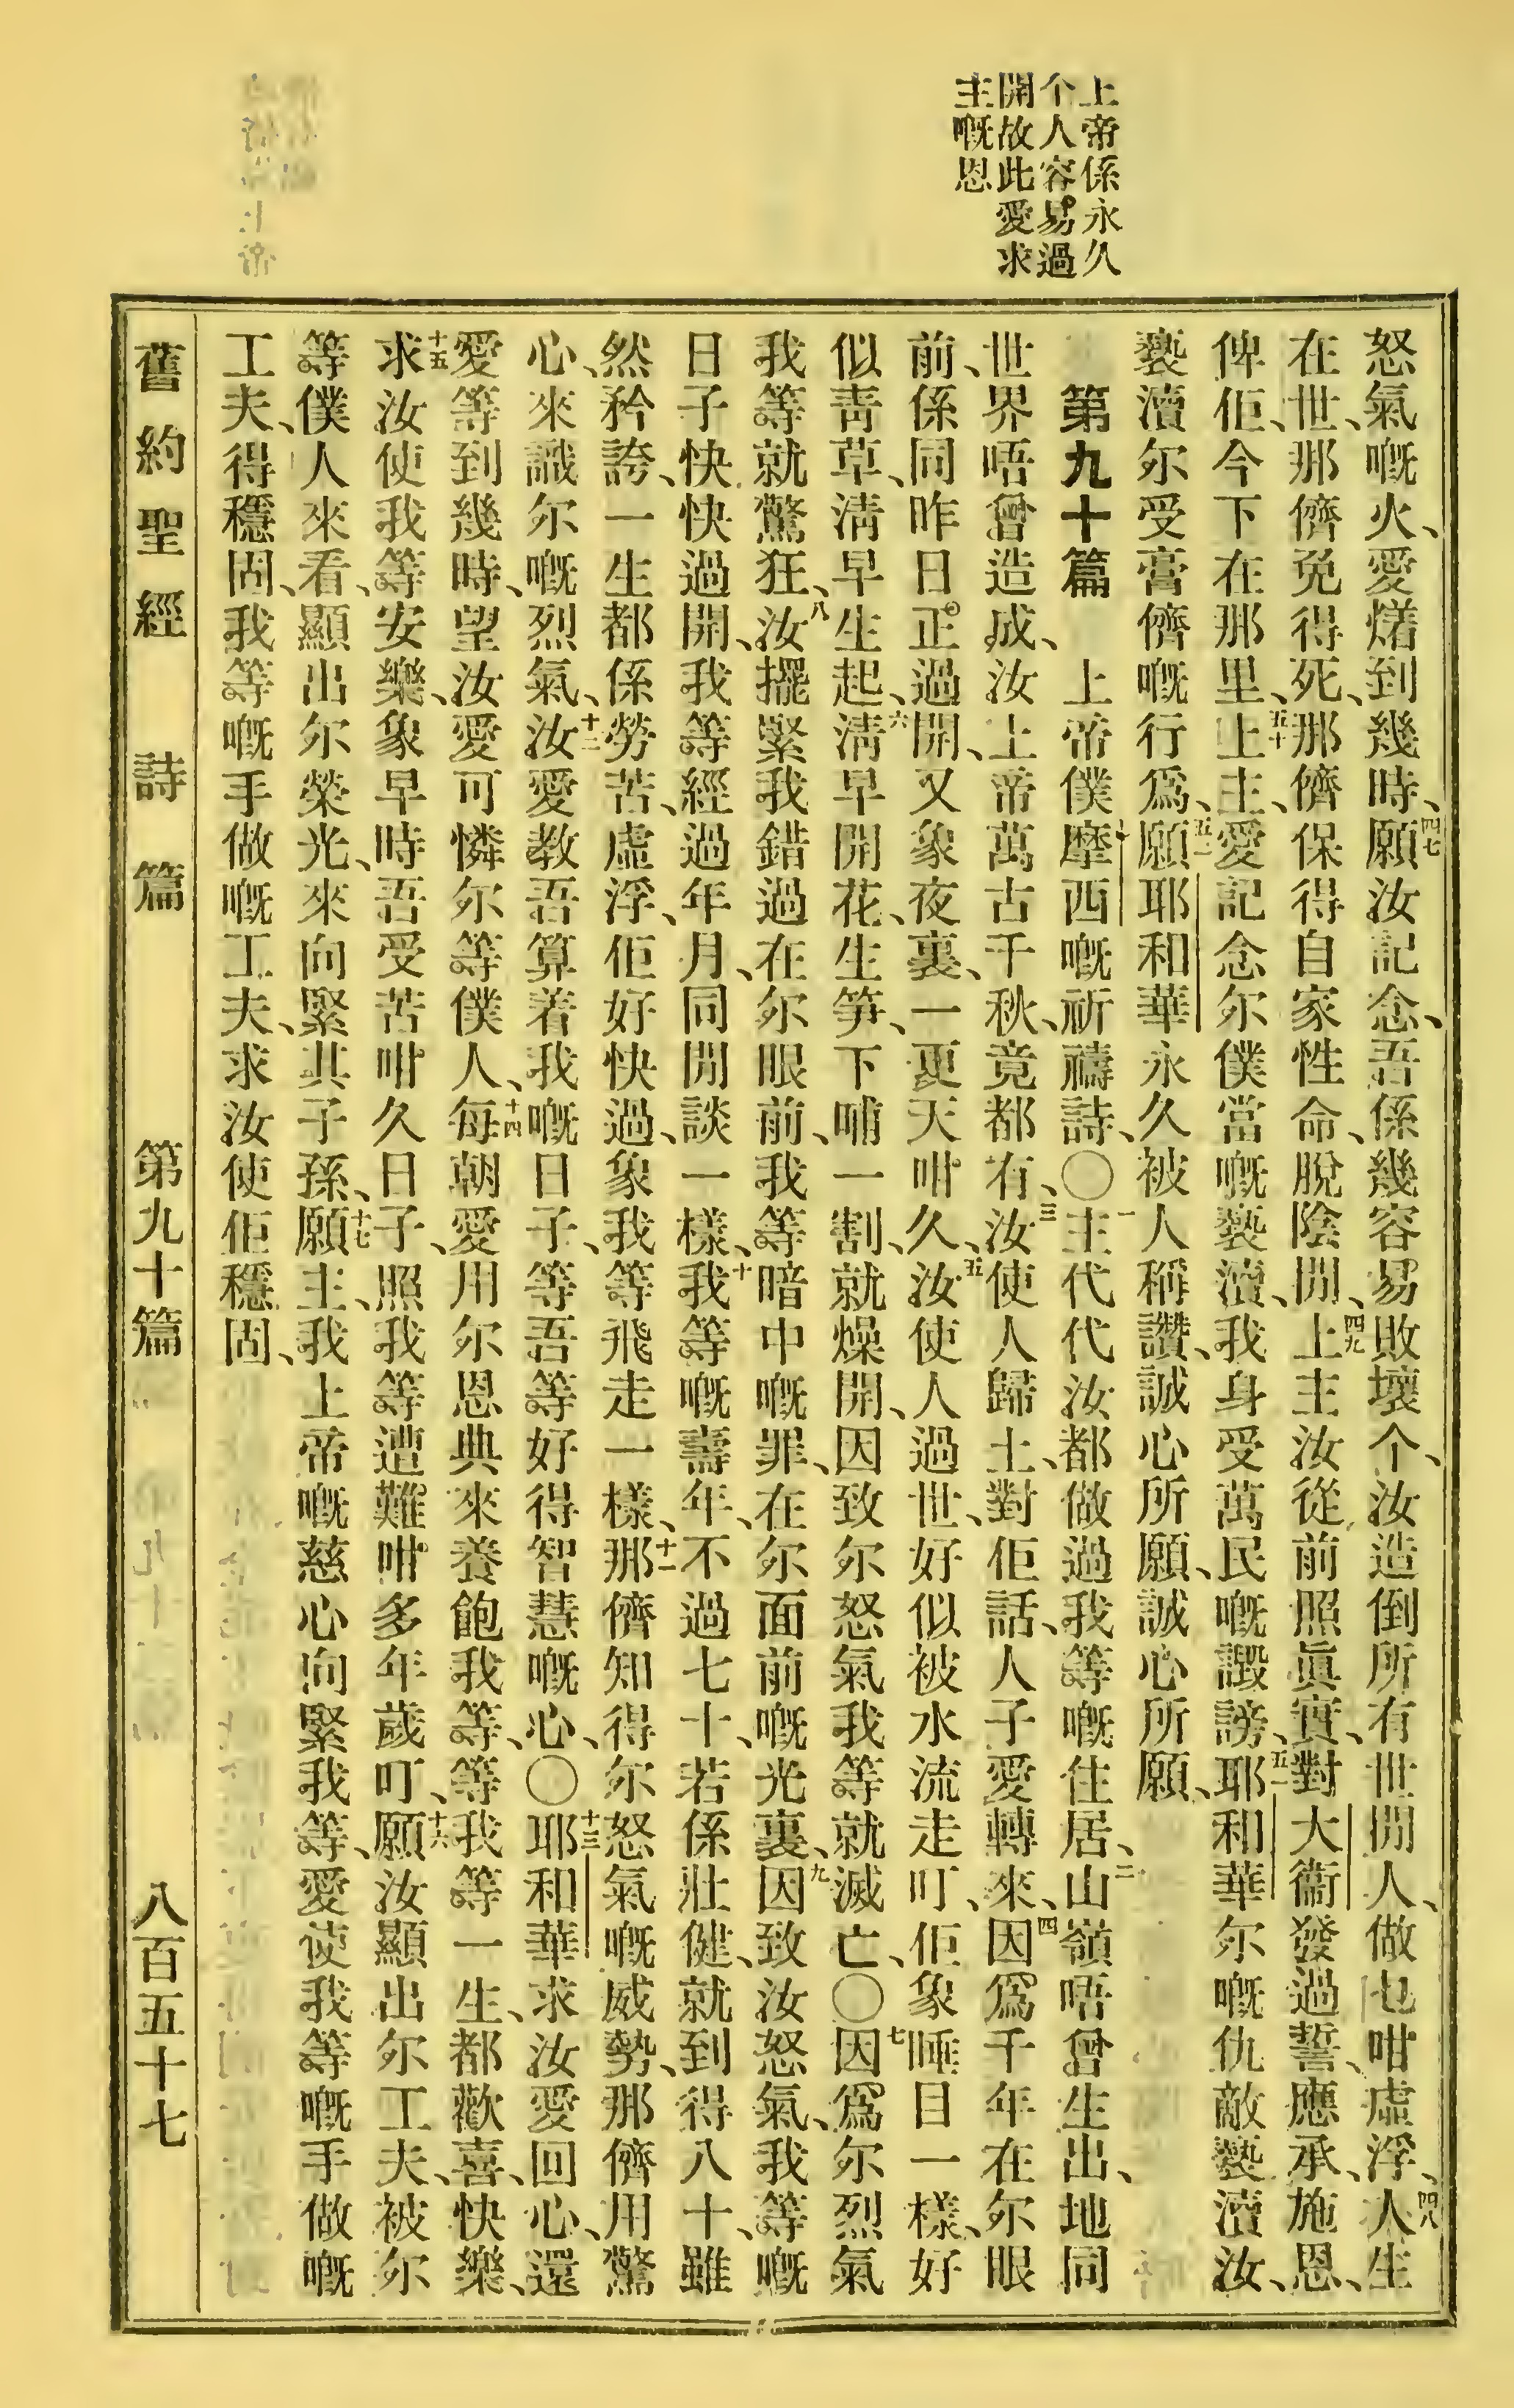 上帝係永久
个人容易過
開故此愛求
主嘅恩
怒氣嘅火、愛㸌到幾時、四七願汝記念、吾係幾容易敗壞个、汝造倒所有世間人、做乜咁虛浮、四八人生
在世、那儕免得死、那儕保得自家性命、脫陰間、四九上主汝從前照眞實、對大衞發過誓、應承施恩、
俾佢、今下在那里、五十上主、愛記念尔僕當嘅褻瀆、我身受萬民嘅譭謗、五一耶和華尔嘅仇敵褻瀆汝、
褻瀆尔受膏儕嘅行爲、五二願耶和華永久被人稱讚、誠心所願、誠心所願、
第九十篇　上帝僕摩西嘅祈禱詩、〇一主代代汝都做過我等嘅住居、二山嶺唔曾生出、地同
世界唔曾造成、汝上帝萬古千秋、竟都有、三汝使人歸土、對佢話、人子愛轉來、四因爲千年在尔眼
前、係同昨日正過開、又象夜裏、一更天咁久、五汝使人過世、好似被水流走叮、佢象睡目一樣、好
似靑草、淸早生起、六淸早開花、生笋、下晡一割、就燥開、因致尔怒氣我等就滅亡、〇七因爲尔烈氣
我等就驚狂、八汝擺緊我錯過在尔眼前、我等暗中嘅罪、在尔面前嘅光裏、九因致汝怒氣、我等嘅
日子快快過開、我等經過年月、同閒談一樣、十我等嘅壽年、不過七十、若係壯健、就到得八十、雖
然矜誇、一生都係勞苦、虛浮、佢好快過、象我等飛走一樣、十一那儕知得尔怒氣嘅威勢、那儕用驚
心、來識尔嘅烈氣、十二汝愛教吾算着我嘅日子、等吾等好得智慧嘅心、〇十三耶和華求汝愛回心、還
愛等到幾時、望汝愛可憐尔等僕人、十四每朝愛用尔恩典來養飽我等、等我等一生、都歡喜、快樂、
十五求汝使我等安樂、象早時吾受苦咁久日子、照我等遭難咁多年歲叮、十六願汝顯出尔工夫、被尔
等僕人來看、顯出尔榮光、來向緊其子孫、十七願主、我上帝嘅慈心向緊我等、愛使我等嘅手做嘅
工夫、得穩固、我等嘅手做嘅工夫、求汝使佢穩固、
舊約聖經　詩篇　第九十篇　八百五十七